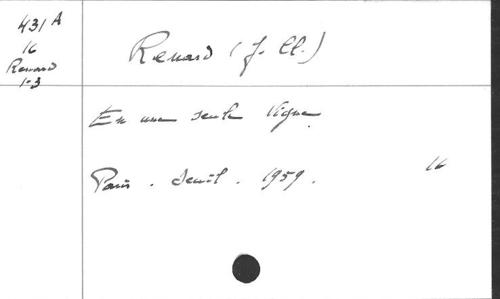 431 A
16
Renard
1-3
Renard (J. Cl.)
En une seule vigne.
Paris. Seuil. 1959.
16